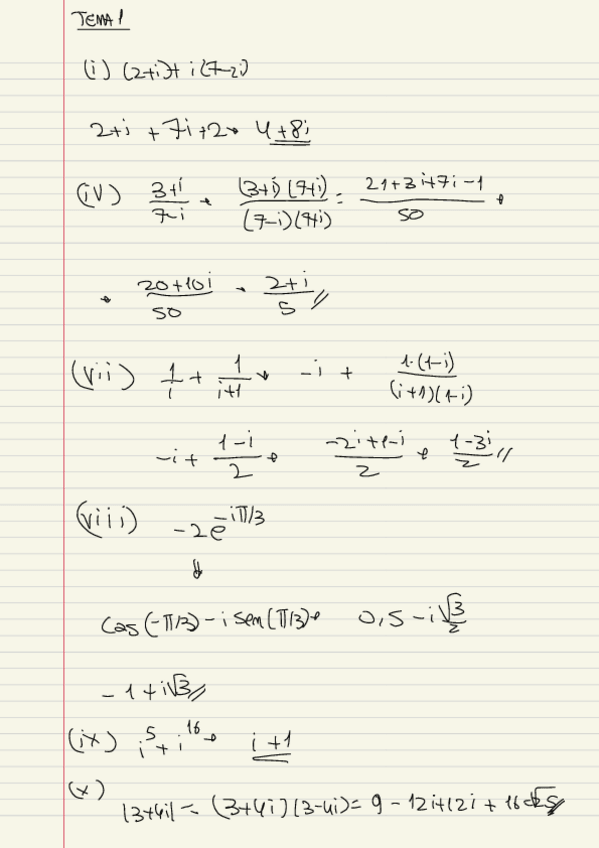 TEMA 1
(i) (2+i)+ i(7-2i)
2+i +7i+2→ 4+8i
(iV) 3+i/7-i → (3+i)(7+i)/(7-i)(7+i) = 21+3i+7i-1/50 →
→ 20+10i/50 → 2+i/5 //
(vii) 1/i + 1/i+1 → -i + 1·(1-i)/(i+1)(1-i)
-i + 1-i/2 → -2i+1-i/2 → 1-3i/2 //
(viii) -2e^-iπ/3
↓
cos(-π/3)-i sen(π/3)→ 0,5 -i √3/2
-1+i√3 //
(ix) i^5 + i^16 → i+1
(x)
|3+4i| = (3+4i)(3-4i)= 9 - 12i+12i + 16